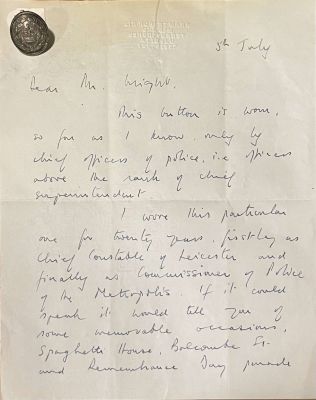 5th July
Dear Mr. Wright.
This button is worn,
so far as I know, only by
chief officers of police, i.e officers
above the rank of chief
superintendent.
I wore this particular
one for twenty years, firstly as
Chief Constable of Leicester and
finally as Commissioner of Police
of the Metropolis. If it could
speak it would tell you of
some memorable occasions,
Spaghetti House, Balcombe St.
and Remembrance Day parade